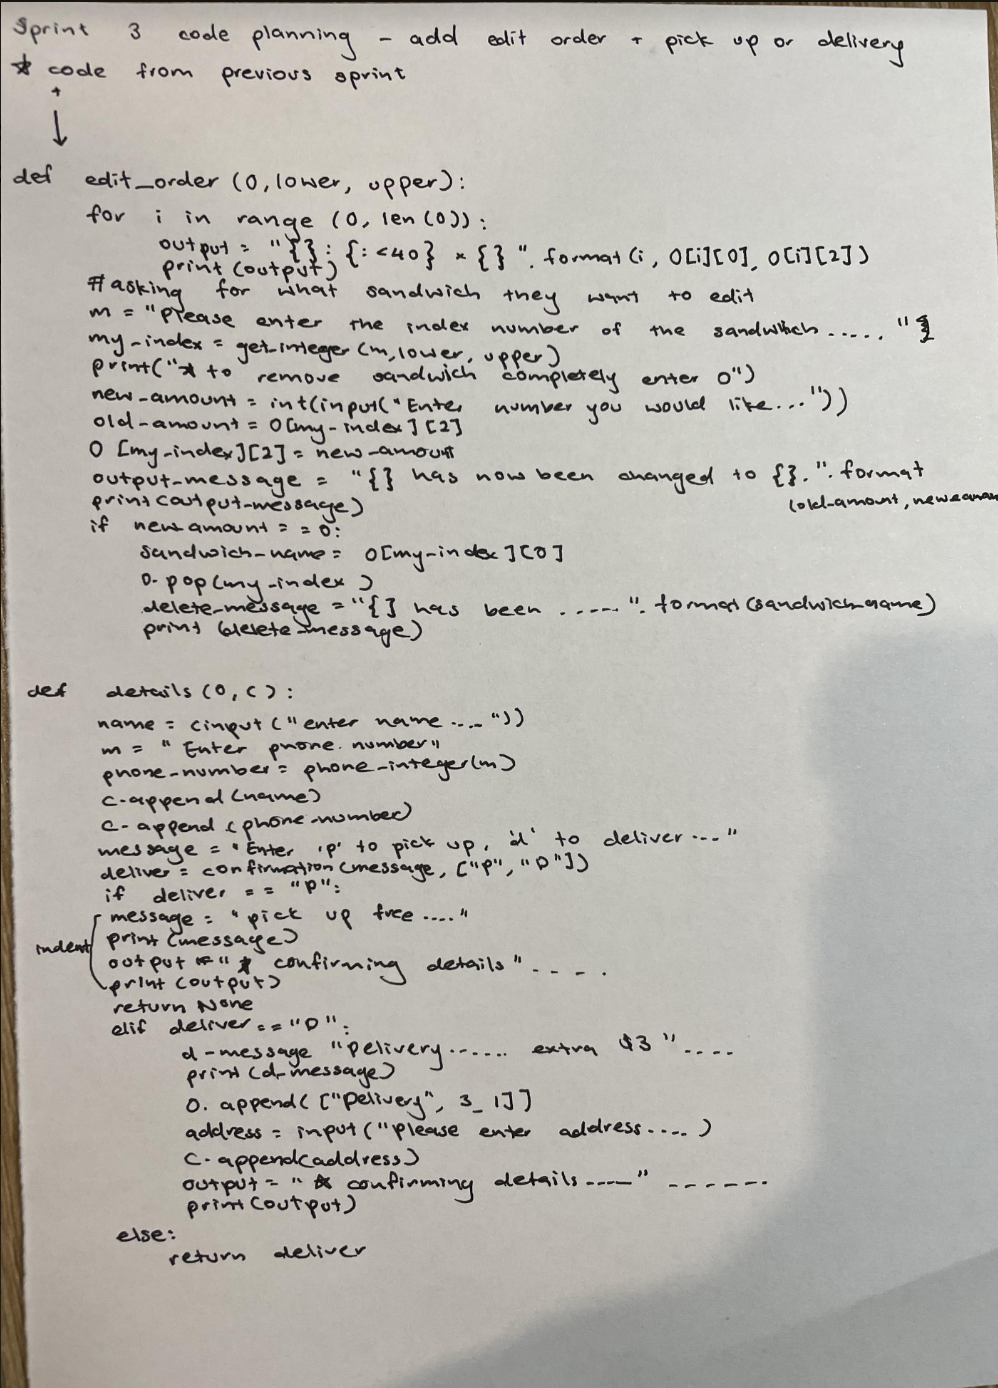 Sprint 3 code planning - add edit order + pick up or delivery
* code from previous sprint
+
↓
def edit_order (O, lower, upper):
for i in range (0, len(O)):
output = "{}: {:<40} x {} ". format (i, O[i][0], O[i][2])
print (output)
# asking for what sandwich they want to edit
m = "Please enter the index number of the sandwhich ..... "
my-index = get-integer (m, lower, upper)
print("* to remove sandwich completely enter 0")
new-amount = int(input("Enter number you would like..."))
old-amount = O[my-index][2]
O [my-index][2] = new-amount
output-message = "{} has now been changed to {}.". format
(old-amount, new
print(output-message)
if new-amount == 0:
sandwich-name = O[my-index][0]
O. pop(my-index )
delete-message = "{} has been ..... ". format (sandwich-name)
print (delete-message)
def details (O, C):
name = cinput ("enter name .... "))
m = " Enter phone. number"
phone-number = phone-integer(m)
C.append (name)
C. append (phone-number)
message = "Enter 'p' to pick up, 'd' to deliver ... "
deliver = confirmation (message, ["P", "D"])
if deliver == "P":
message = " pick up free ...."
indent
print (message)
output = " * confirming details " - - - .
print (output)
return None
elif deliver == "D":
d-message "Delivery ...... extra $3 " ....
print (d-message)
O. append( ["Delivery", 3_ 1]]
address = input ("please enter address .... )
C. append(address)
output = " * confirming details ----" ------.
print (output)
else:
return deliver